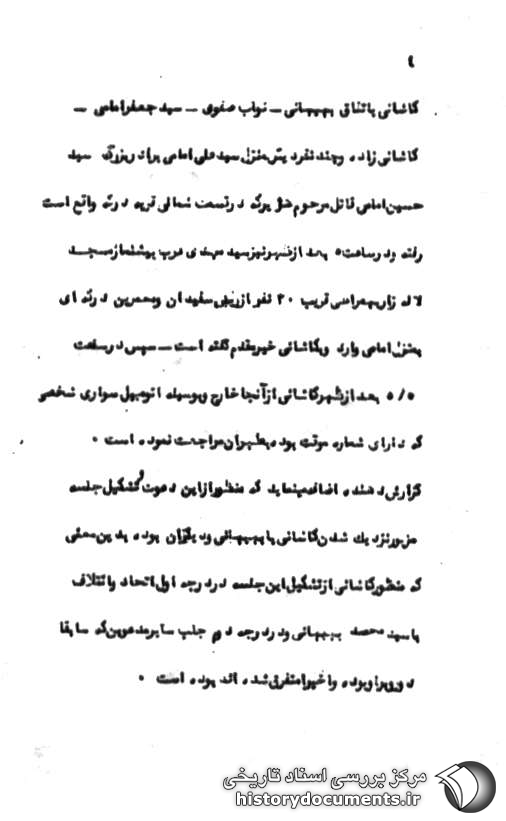 ٤
کاشانی باتفاق بهبهانی ـ نواب صفوی ـ سید جعفر امامی ـ
کاشانی زاده وچند نفر دیگر بمنزل سید علی امامی برادر بزرگ سید
حسین امامی قاتل مرحوم هژیر که در قسمت شمالی قریه درکه واقع است
رفته ودر ساعت ٥ بعد از ظهر نیز سید مهدی عرب پیشنماز مسجد
لاله زار بهمراهی قریب ٢٠ نفر از ریش سفیدان ومعمرین درکه ای
بمنزل امامی وارد وبکاشانی خیر مقدم گفته است ـ سپس در ساعت
٥/٥ بعد از ظهر کاشانی از آنجا خارج وبوسیله اتومبیل سواری شخصی
که دارای شماره موقت بوده بطهران مراجعت نموده است ٠
گزارش دهنده اضافه مینماید که منظور از این دعوت و تشکیل جلسه
مزبور نزدیك شدن کاشانی با بهبهانی ودیگران بوده بدین معنی
که منظور کاشانی از تشکیل این جلسه در درجه اول اتحاد وائتلاف
با سید محمد بهبهانی ودر درجه دوم جلب سایر مدعوین که سابقا
دورویرا وبوده واخیرا متفرق شده اند بوده است ٠
مرکز بررسی اسناد تاریخی
historydocuments.ir